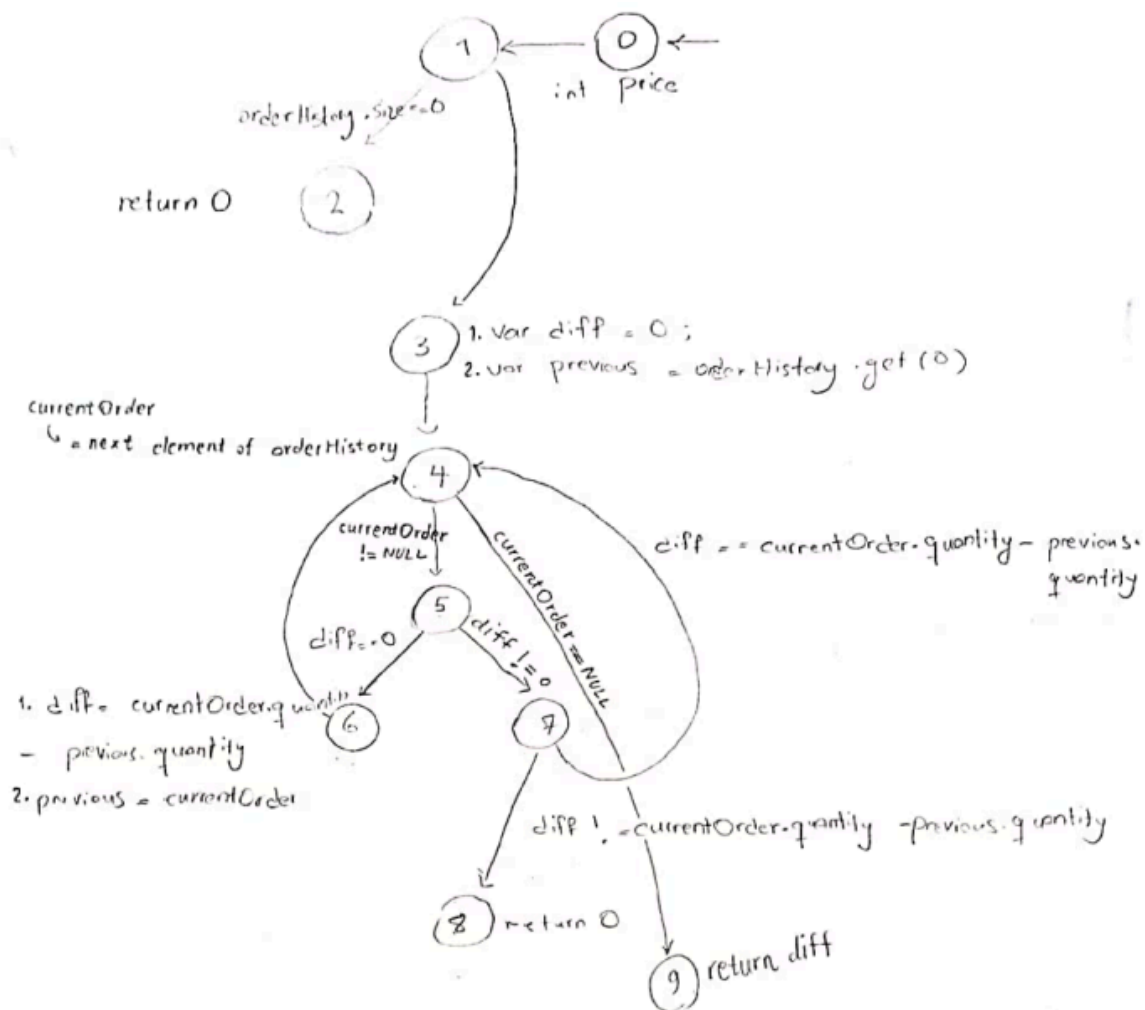 1
0
int price
orderHistory.size==0
return 0
2
3
1. var diff = 0;
2. var previous = orderHistory.get(0)
currentOrder
= next element of orderHistory
4
currentOrder
!= NULL
currentOrder == NULL
diff == currentOrder.quantity - previous.
quantity
5
diff==0
diff != 0
1. diff= currentOrder.quantity
- previous.quantity
2. previous = currentOrder
6
7
diff != currentOrder.quantity -previous.quantity
8
return 0
9
return diff